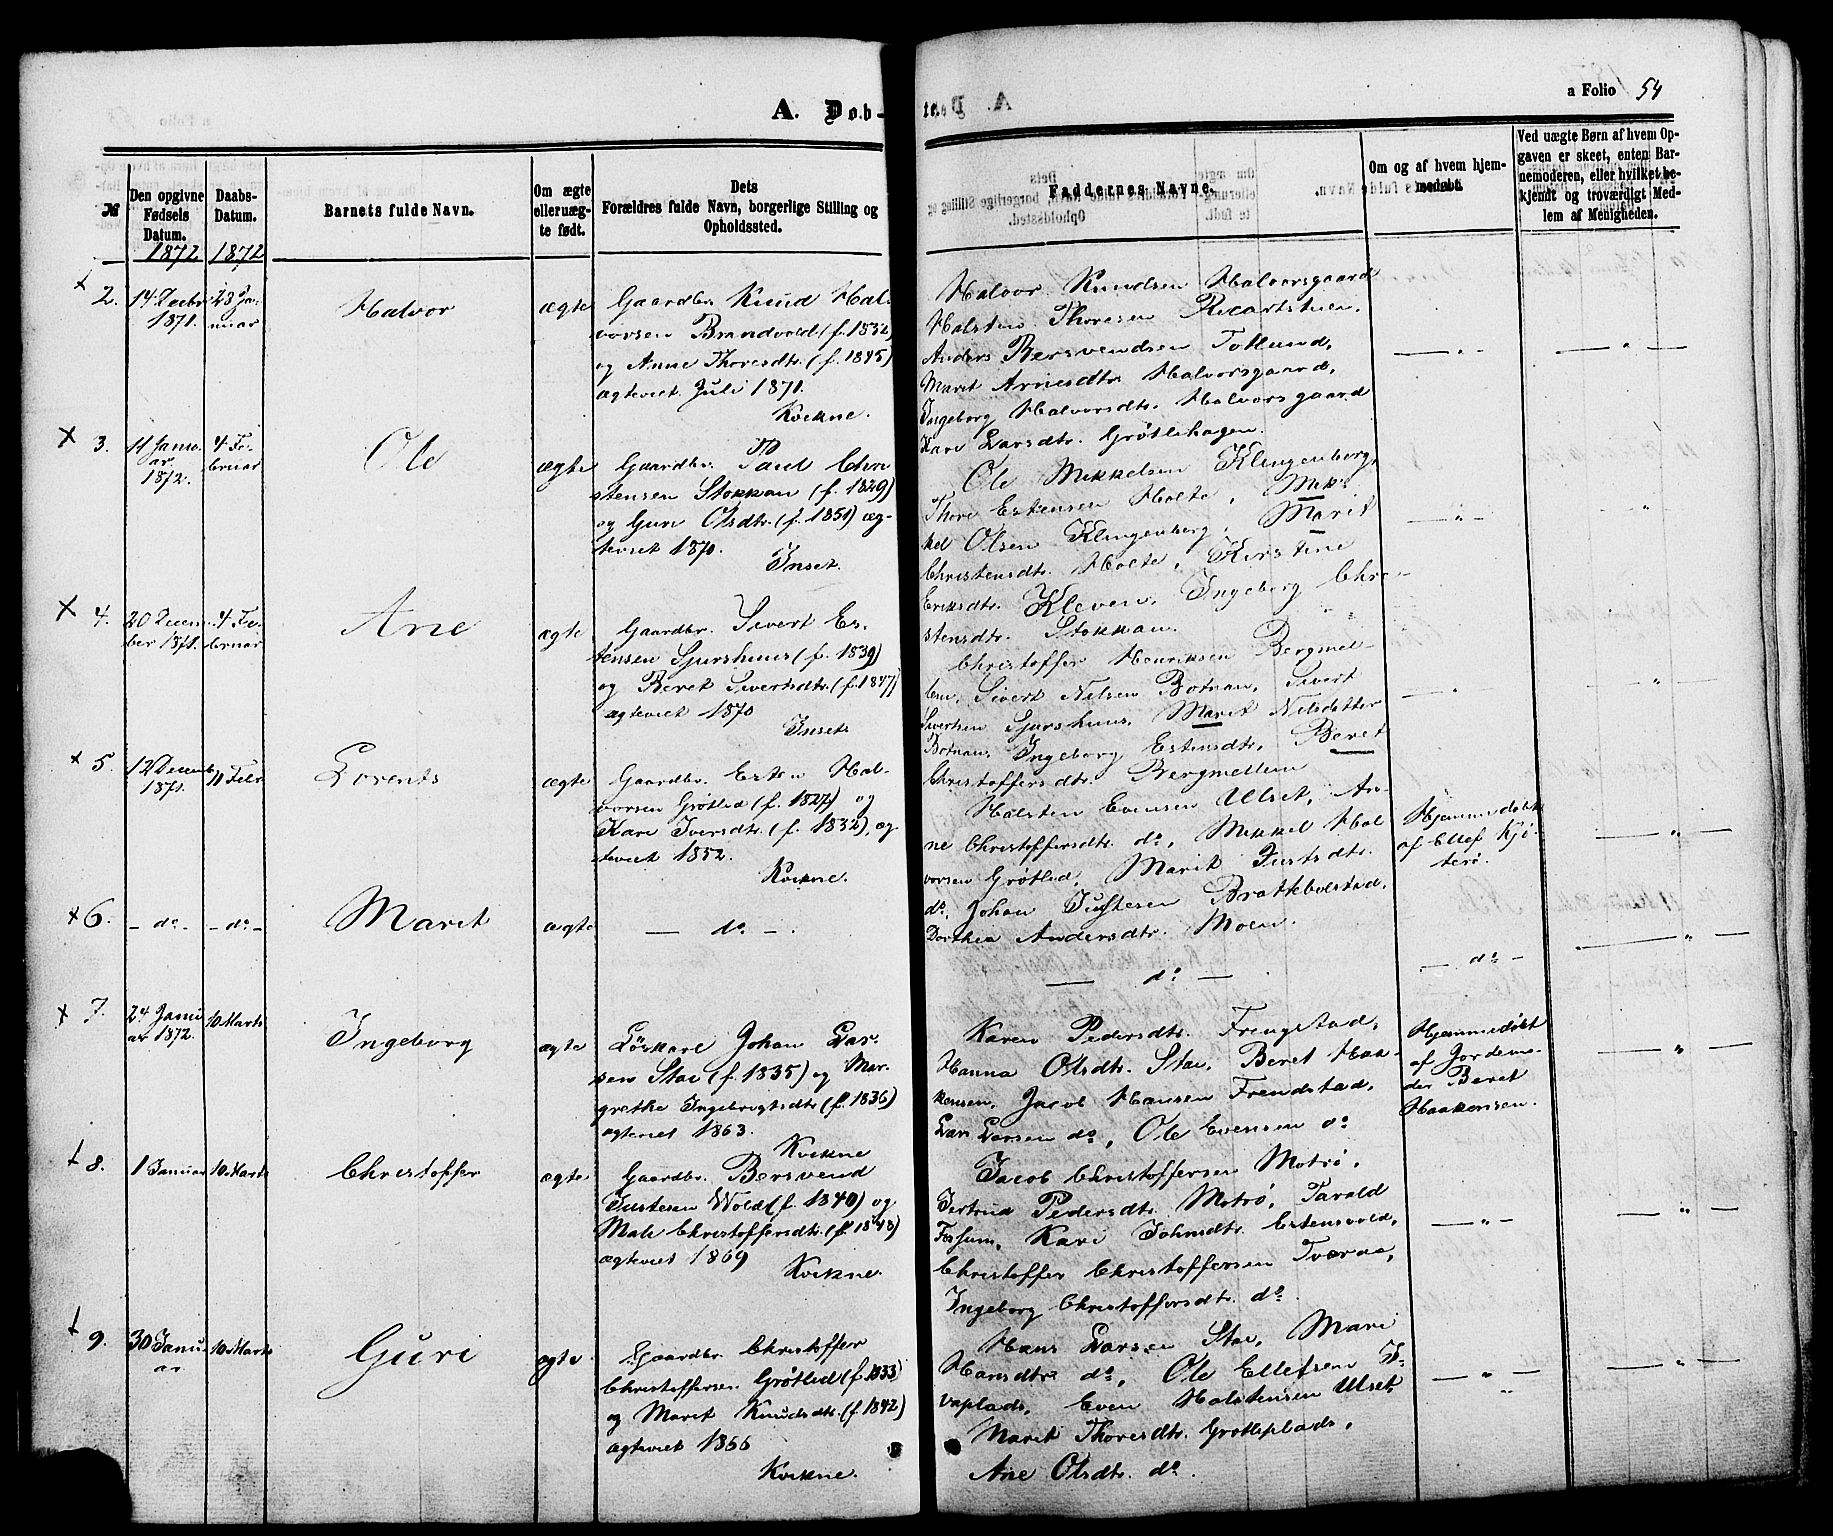 A. Dob-
a Folio 54
№
Den opgivne Fødsels Datum.
1872
Daabs-Datum.
1872
Barnets fulde Navn.
Om ægte eller uægte født.
Dets Forældres fulde Navn, borgerlige Stilling og Opholdssted.
Faddernes Navne.
Om og af hvem hjemmedøbt.
Ved uægte Børn af hvem Opgaven er skeet, enten Barnemoderen, eller hvilket bekjendt og troværdigt Medlem af Menigheden.
2.
14 Decbr
1871.
28 Ja-
nuar
Halvor
ægte
Gaardbr. Knud Hal-
vorsen Brandvold (f. 1832)
og Anne Thoresdtr. (f. 1845)
ægteviet Juli 1871.
Kvikne.
Halvor Knudsen Halvorsgaard
Halsten Thoresen
Anders Bersvendsen Totlund,
Marit Arnesdtr. Halvorsgaard,
Ingeborg Halvorsdtr. Halvorsgaard
Kari Larsdtr. Grøtlihagen.
— " —
— " —
3.
11 Janu-
ar
1872.
4 Fe-
bruar
Ole
ægte
Gaardbr. Paul Chri
stensen Stokkan (f. 1829)
og Guri Olsdtr. (f. 1851) æg-
teviet 1870.
Inset.
Ole Mikkelsen Klingenberg,
Thore Estensen Holte, Mik-
kel Olsen Klingenberg, Marit
Christensdtr. Holte, Kirstine
Eriksdtr. Kleven, Ingeborg Chri-
stensdtr. Stokkan.
— " —
"
4.
20 Decem-
ber 1871.
4 Fe-
bruar
Ane
ægte
Gaardbr. Sivert Es-
tensen Sjurshuus (f. 1839)
og Beret Sivertsdtr. (f. 1847)
ægteviet 1870
Inset.
Christoffer Henriksen Bergmel-
lem, Sivert Nilsen Botnan, Sivert
Sivertsen Sjurshuus, Marit Nilsdatter
Botnan, Ingeborg Estensdtr., Beret
Christoffersdtr. Bergmellem
— " —
— " —
5.
12 Decemb
1871.
11 Febr
Lorents
ægte
Gaardbr. Esten Hal-
vorsen Grøtlid (f. 1827) og
Kari Iversdtr. (f. 1832), æg-
teviet 1852.
Kvikne.
Halsten Evensen Ulset, An-
ne Christoffersdtr. do, Mikkel Hal
vorsen Grøtlid, Marit Justsdtr.
do, Johan Justesen Brattebolstad,
Dorthea Andersdtr. Moen.
Hjemmedøbt
af Ellef Kjø-
terø.
— " —
6.
— do —
— do —
Marit
ægte
— do —.
— do —
— do —
— " —
7.
24 Janu
ar 1872.
10 Marts
Ingeborg
ægte
Løskarl Johan Lar-
sen Stai (f. 1835) og Mar-
grethe Ingebrigtsdtr. (f. 1836)
ægteviet 1863.
Kvikne
Karen Pedersdtr. Frengstad,
Hanna Olsdtr. Stai, Beret Haa-
kensen, Jacob Hansen Frendstad,
Lars Larsen do, Ole Evensen do
Hjemmedøbt
af Jordemo-
der Beret
Haakensen.
— " —
8.
1 Januar
10 Marts
Christoffer
ægte
Gaardbr. Bersvend
Justesen Wold (f. 1840) og
Mali Christoffersdtr. (f. 1848)
ægteviet 1869
Kvikne.
Jacob Christoffersen Motrø,
Gertrud Pedersdtr. Motrø, Tarald
Fossum, Kari Johnsdtr. Estensvold,
Christoffer Christoffersen Tværaa,
Ingeborg Christoffersdtr. do.
— " —
— " —
9.
30 Janu-
ar
10 Marts
Guri
ægte
Gaardbr. Christoffer
Christoffersen Grøtlid (f. 1833)
og Marit Knudsdtr. (f. 1842)
ægteviet 1866
Kvikne.
Hans Larsen Stai, Mari
Hansdtr. do, Ole Ellefsen I-
vaplads, Even Halstensen Ulset,
Marit Thoresdtr. Grøtliplads,
Ane Olsdtr. do.
— " —
— " —